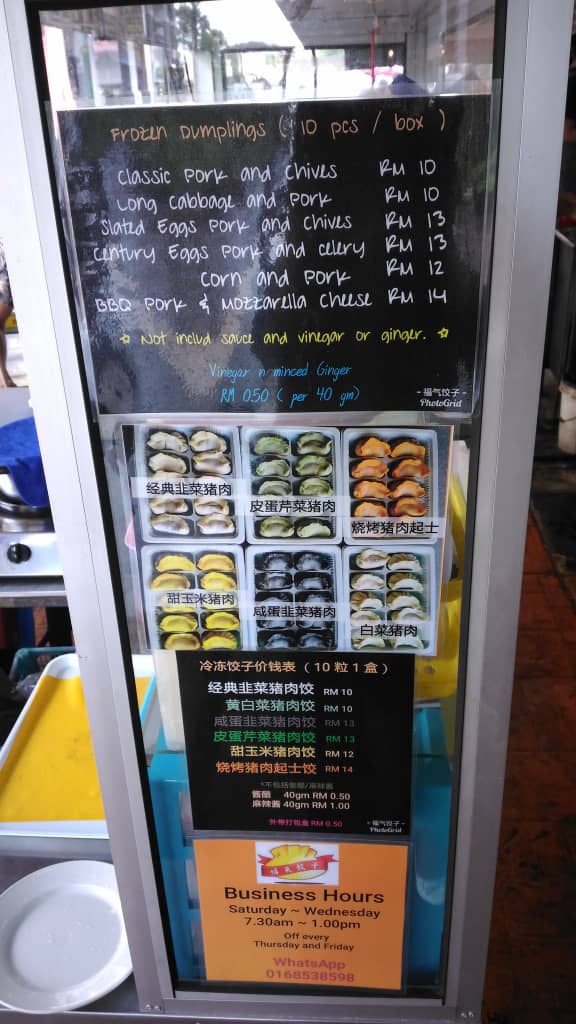 Frozen Dumplings ( 10 pcs / box )
Classic Pork and Chives RM 10
Long Cabbage and Pork RM 10
Slated Eggs Pork and Chives RM 13
Century Eggs Pork and celery RM 13
Corn and Pork RM 12
BBQ Pork & Mozzarella Cheese RM 14
☆ Not includ sauce and vinegar or ginger. ☆
Vinegar n minced Ginger
RM 0.50 ( per 40 gm)
- 福气饺子 -
PhotoGrid
经典韭菜猪肉
皮蛋芹菜猪肉
烧烤猪肉起士
甜玉米猪肉
咸蛋韭菜猪肉
白菜猪肉
冷冻饺子价钱表 ( 10 粒 1 盒 )
经典韭菜猪肉饺 RM 10
黄白菜猪肉饺 RM 10
咸蛋韭菜猪肉饺 RM 13
皮蛋芹菜猪肉饺 RM 13
甜玉米猪肉饺 RM 12
烧烤猪肉起士饺 RM 14
*不包括酱醋/麻辣酱
酱醋 40gm RM 0.50
麻辣酱 40gm RM 1.00
外带打包盒 RM 0.50
- 福气饺子 -
PhotoGrid
福气饺子
Business Hours
Saturday ~ Wednesday
7.30am ~ 1.00pm
Off every
Thursday and Friday
WhatsApp
0168538598